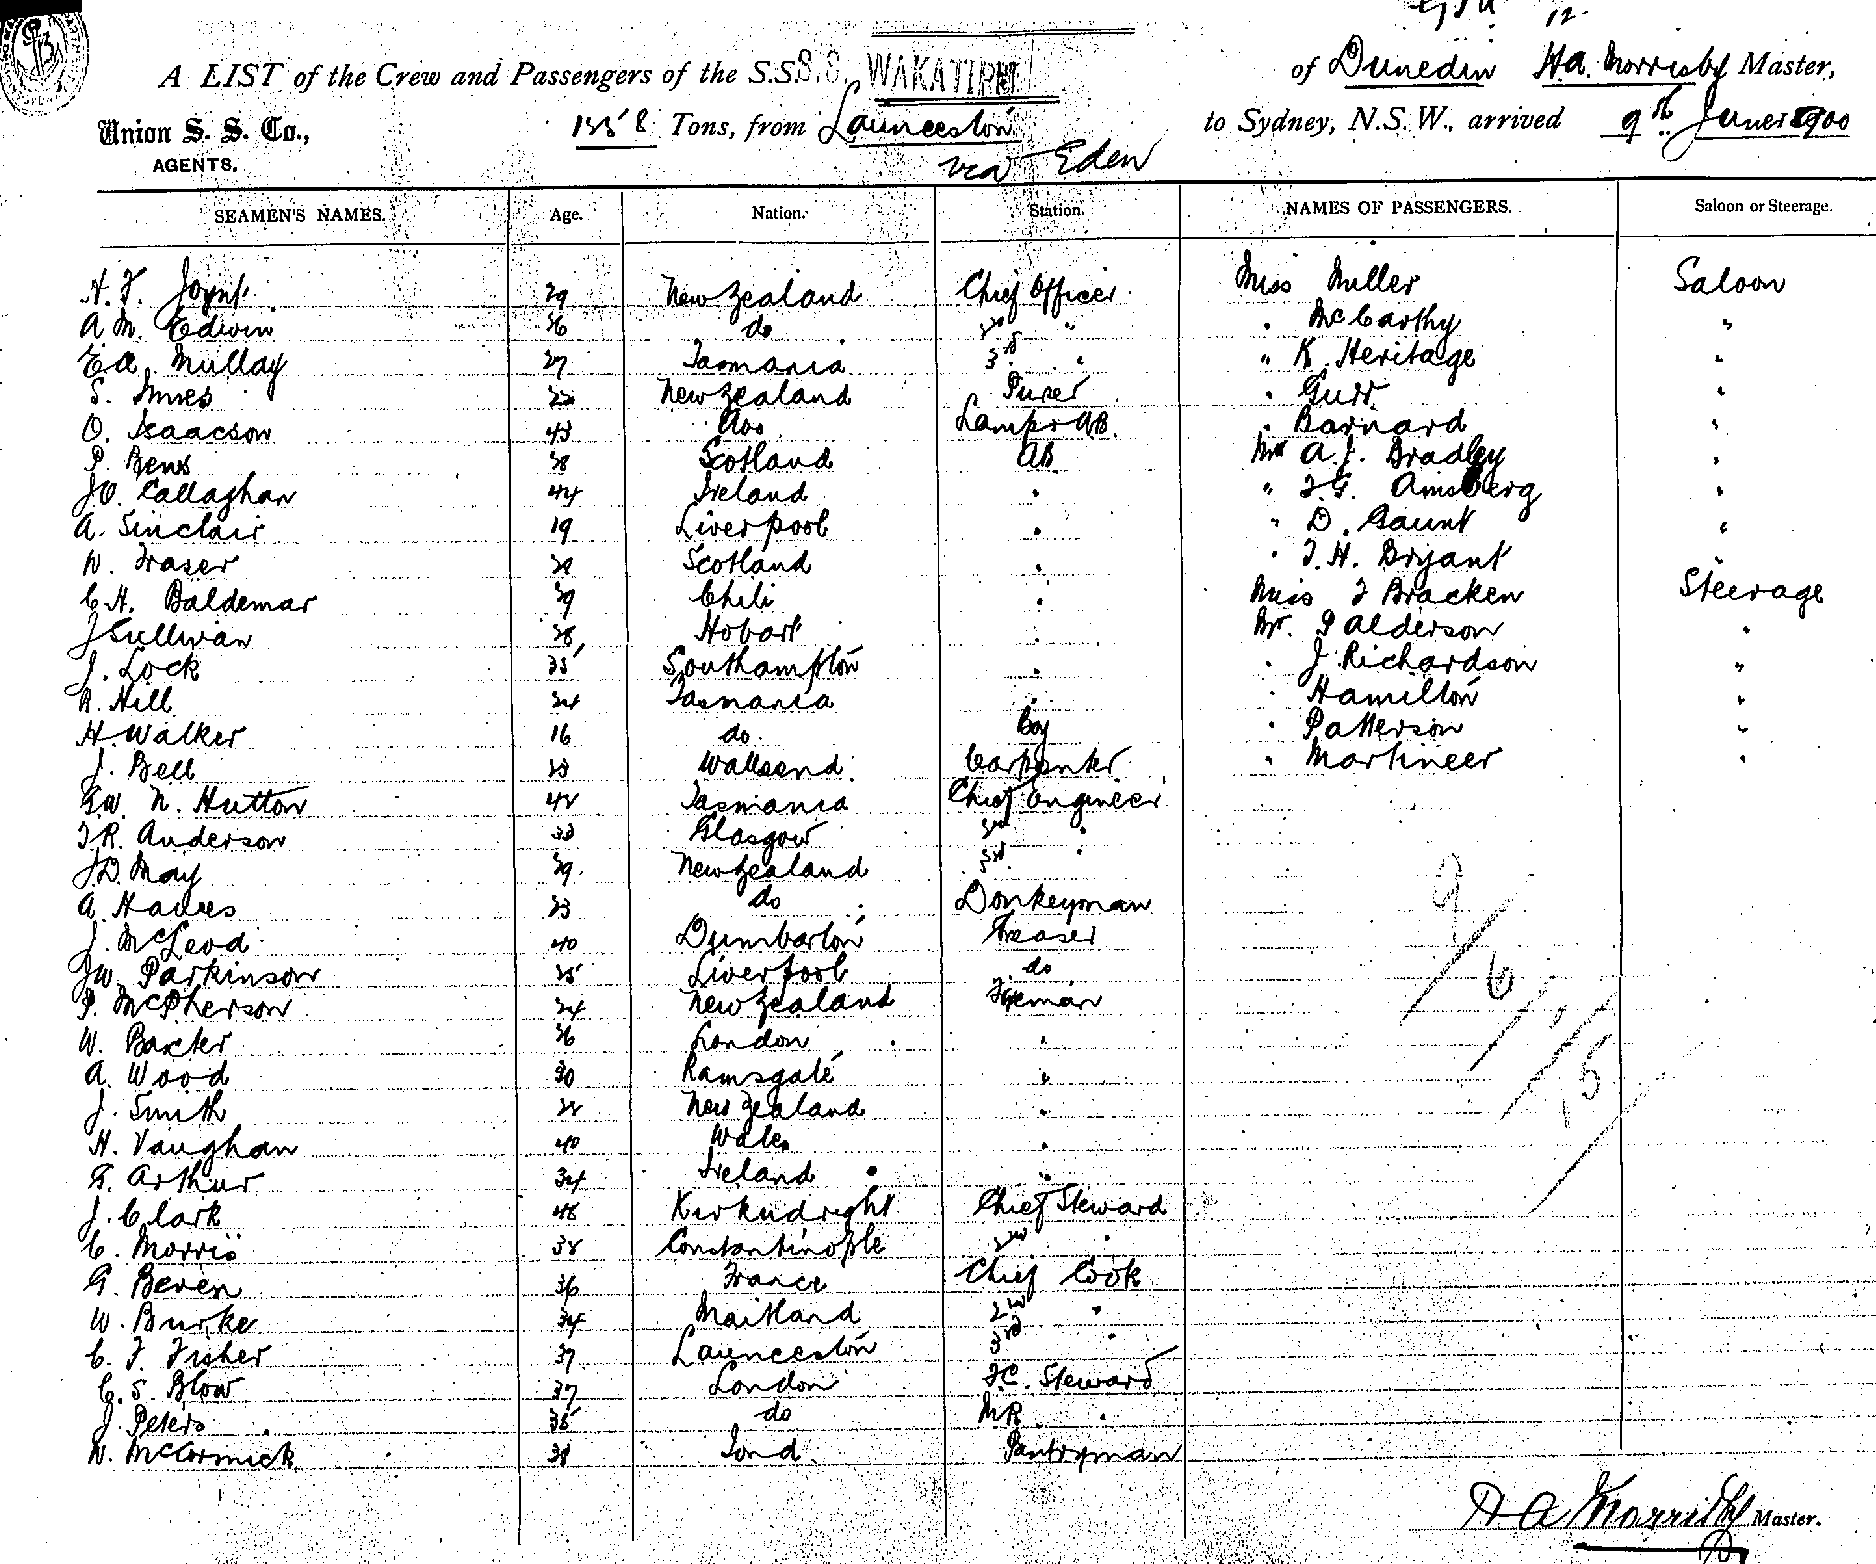 A LIST of the Crew and Passengers of the S.S. S.S. WAKATIPU of Dunedin H.A. Morrisby Master,
Union S. S. Co., 1158 Tons, from Launceston to Sydney, N.S.W., arrived 9th June 1900
AGENTS. via Eden
SEAMEN'S NAMES. Age. Nation. Station. NAMES OF PASSENGERS. Saloon or Steerage.
New Zealand Chief Officer Miss Miller Saloon
A. M. Edwin do 2nd " " McCarthy "
E.A. Mullay 27 Tasmania 3rd " " K. Heritage "
S. Innes New Zealand Purser " Gurr "
O. Isaacson 43 Lamps AB. " Barnard "
P. Scotland AB Mr A. J. Bradley "
J O. Callaghan 44 Ireland " " Amsberg "
A. Sinclair 19 Liverpool " " D. Gaunt "
W. Fraser Scotland " " T. H. Bryant
C. H. Baldemar Chili " Miss Bracken Steerage
J Sullivan Hobart " Mr. P Alderson "
J. Lock 35 Southampton " " J Richardson "
Hill 24 Tasmania " " Hamilton "
H. Walker 16 do. Boy " Patterson "
J. Bell Wallsend Carpenter " Martineer "
N. Hutton Tasmania Chief Engineer
T R. Anderson 33 Glasgow 2nd "
J.D. May New Zealand 3rd "
A. Hawes 23 do Donkeyman
J. McLeod 40 Dumbarton Greaser
JW. Parkinson Liverpool do
P. McPherson 24 New Zealand Fireman
W. Baxter London "
A. Wood 30 Ramsgate "
J. Smith New Zealand "
H. Vaughan 40 Wales "
G. Arthur 34 Ireland "
J. Clark 48 Kirkudright Chief Steward
C. Morris 38 Constantinople 2nd "
G. Beven 36 France Chief Cook
W. Burke 34 Maitland 2nd "
C. F. Fisher 37 Launceston 3rd "
C. S. Blow 37 London F.C. Steward
J. Peters 35 do MR "
McCormick Pantryman
H A Morrisby Master.